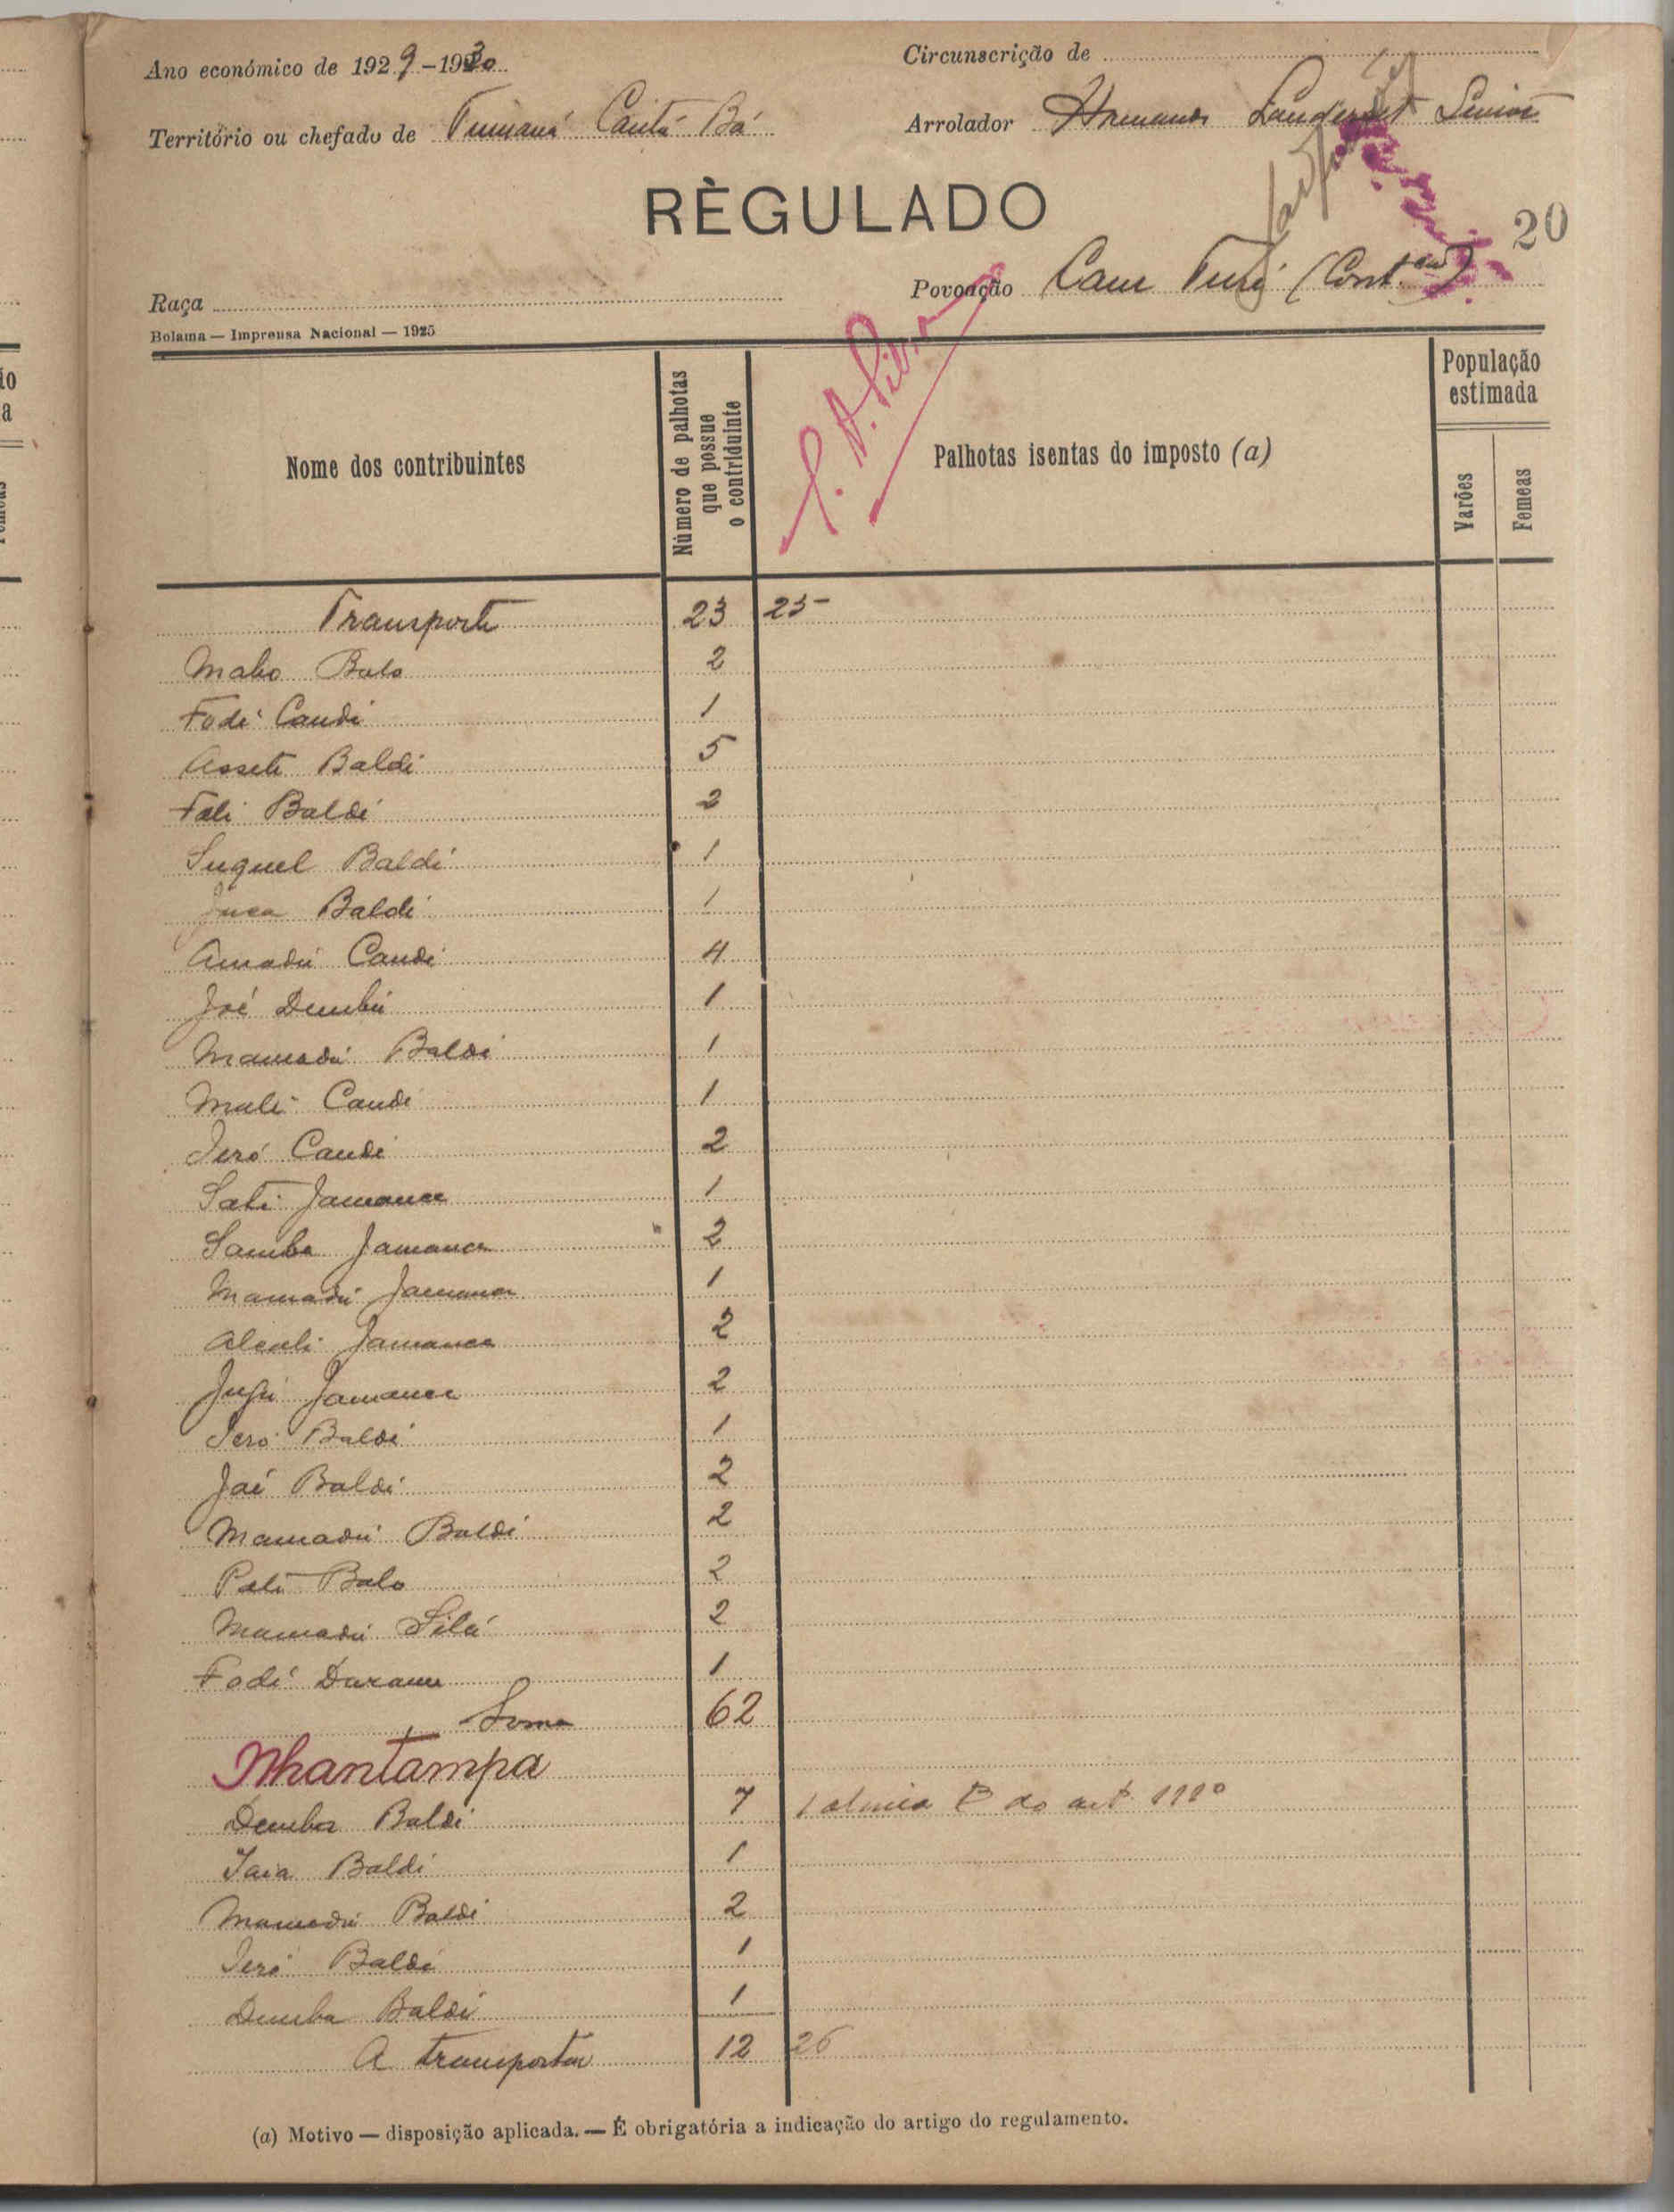 Ano económico de 1929-1930
Circunscrição de
Território ou chefado de Tumaná Cantá Bá
Arrolador
RÈGULADO
20
Raça
Povoação Cam (Cont.)
Bolama — Imprensa Nacional — 1925
Nome dos contribuintes
Número de palhotas que possue o contriduinte
Palhotas isentas do imposto (a)
População estimada
Varões
Femeas
Transporte 23 25-
Balo 2
Fodé Candi 1
Baldé 5
Fali Baldé 2
Suquel Baldé 1
Baldé 1
Amadú Candé 4
Joé Dembú 1
Mamadú Baldé 1
Mali Candé 1
Jeró Candé 2
Sati Jamanca 1
Samba Jamanca 2
Mamadú Jamanca 1
Jamanca 2
Jamanca 2
Jeró Baldé 1
Jaé Baldé 2
Mamadú Baldé 2
Pali Balo 2
Mamadú Silá 2
Fodé Darame 1
Soma 62
Nhantampa
Demba Baldé 7 do art.
Iaia Baldé 1
Mamadú Baldé 2
Jeró Baldé 1
Demba Baldé 1
A transportar 12 26
(a) Motivo — disposição aplicada. — É obrigatória a indicação do artigo do regulamento.